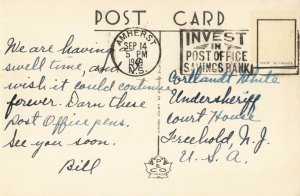 POST CARD
AMHERST
SEP 14
5 PM
1949
N.S.
INVEST
IN
POST OFFICE
SAVINGS BANK
We are having
swell time, and
wish it could continue
forever. Darn these
Post Office pens.
See you soon.
Bill
Cortlandt White
Undersheriff
Court House
Freehold, N.J.
U.S.A.